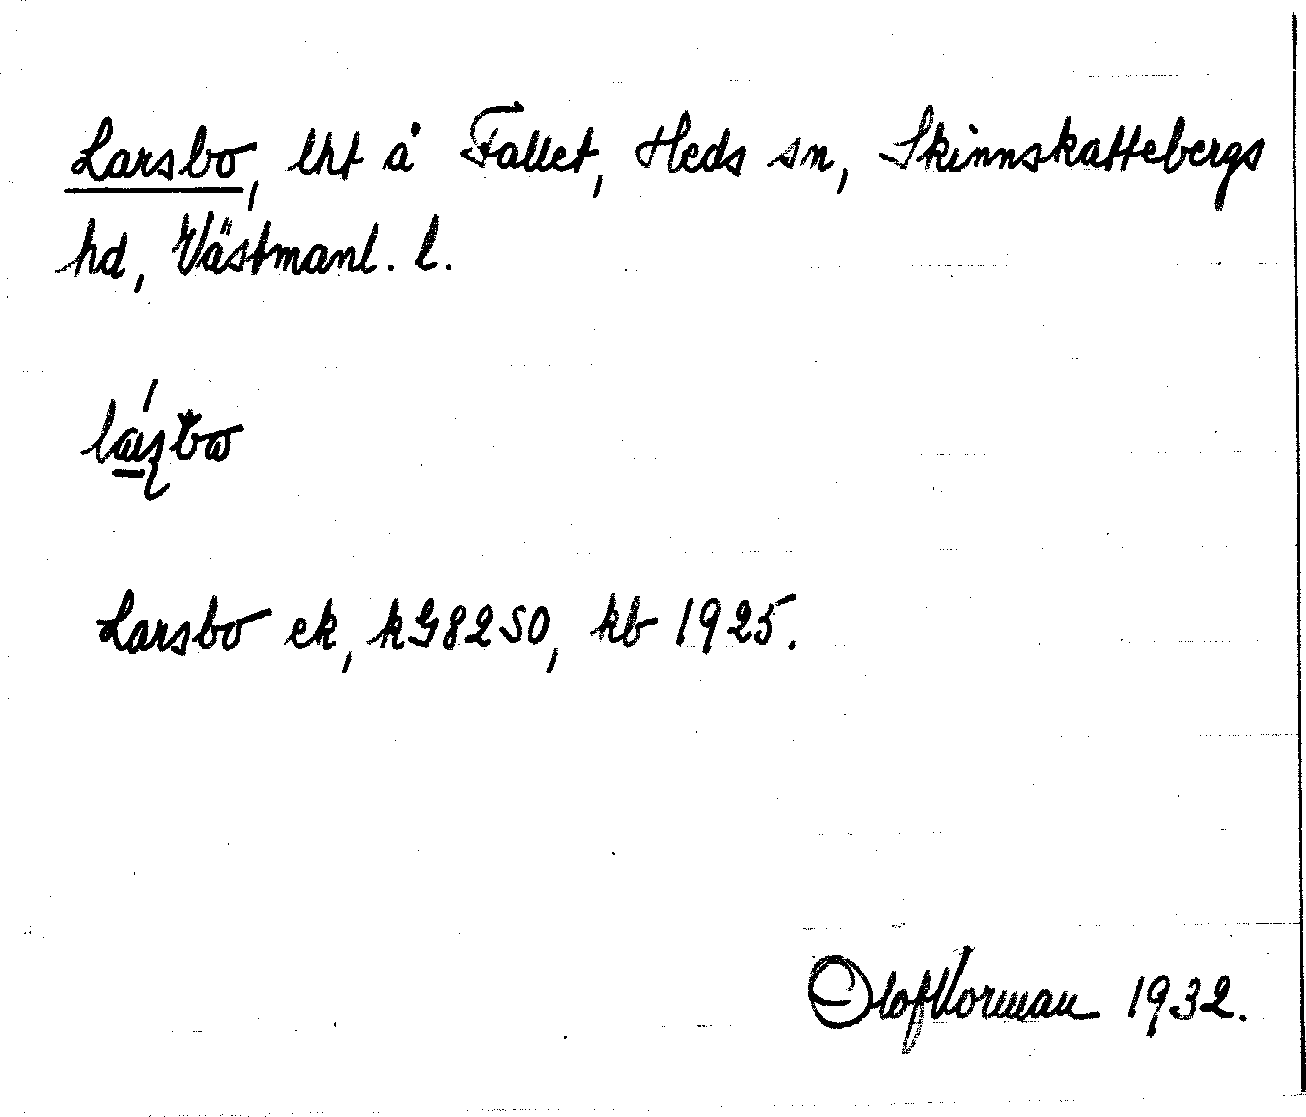 Larsbo, lht å Fallet, Heds sn, Skinnskattebergs
hd, Västmanl. l.
Larsbo ek, kG8250, kb 1925.
Olof Norman 1932.